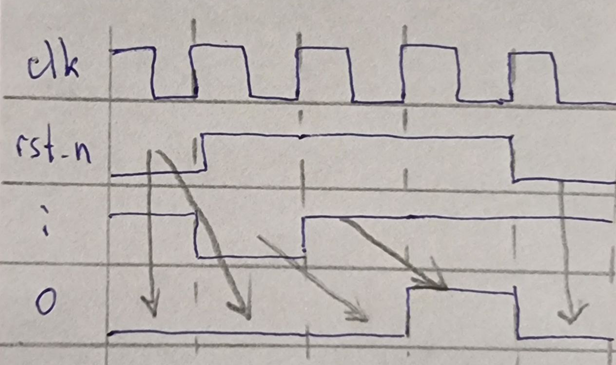 clk
rst_n
i
O